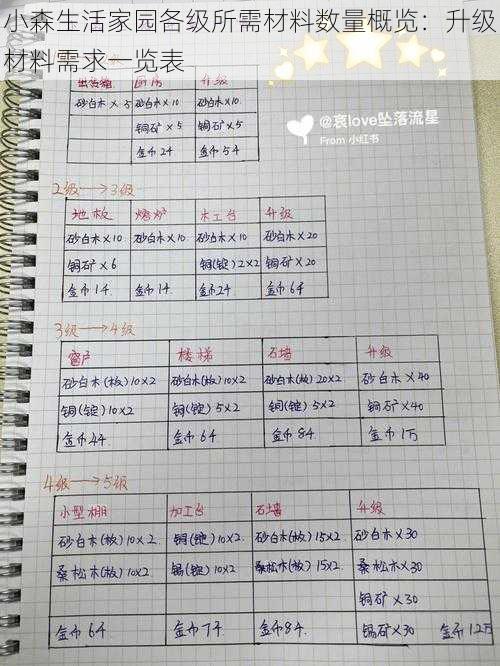 小森生活家园各级所需材料数量概览：升级
材料需求一览表
升级
砂白木×5 砂白木×10 砂白木×10
铜矿×5 铜矿×5
金币24 金币54
@哀love坠落流星
From 小红书
2级→3级
地板 烤炉 木工台 升级
砂白木×10 砂白木×10 砂白木×10 砂白木×20
铜矿×6 铜(锭)2×2 铜矿×20
金币14 金币14 金币24 金币64
3级→4级
窗户 楼梯 石墙 升级
砂白木(板)10×2 砂白木(板)10×2 砂白木(板)20×2 砂白木×40
铜(锭)10×2 铜(锭)5×2 铜(锭)5×2 铜矿×40
金币44 金币64 金币84 金币1万
4级→5级
小型棚 加工台 石墙 升级
砂白木(板)10×2 铜(锭)10×2 砂白木(板)15×2 砂白木×30
桑松木(板)10×2 锡(锭)10×2 桑松木(板)15×2 桑松木×30
铜矿×30
金币64 金币74 金币84 锡矿×30 金币1.2万